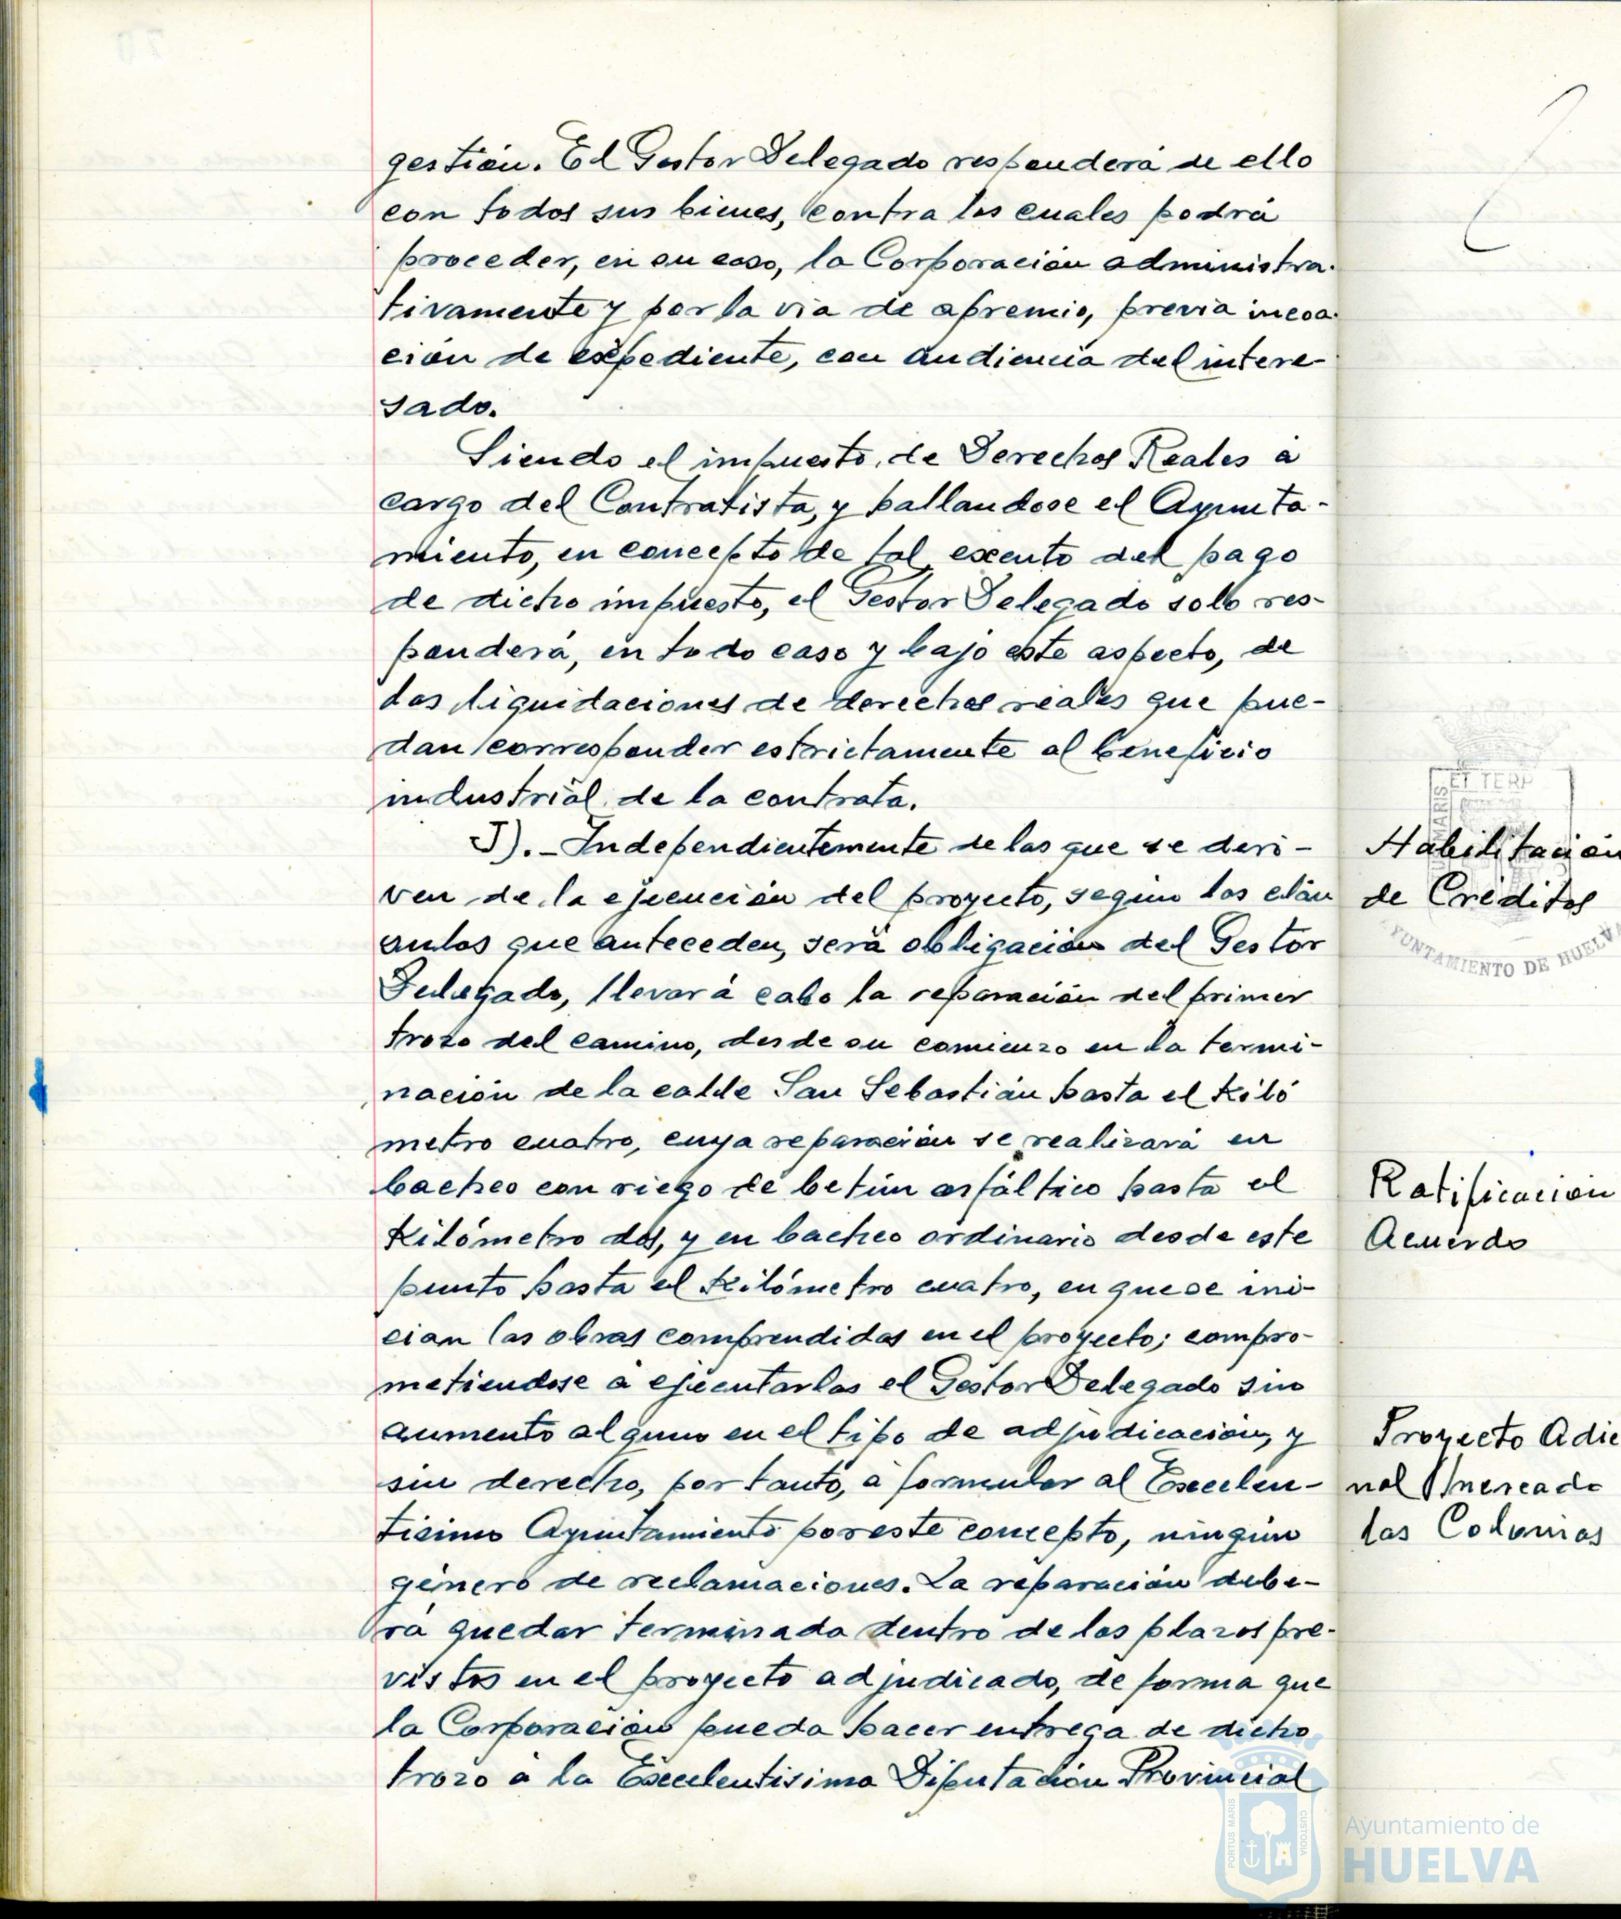 gestión. El Gestor Delegado responderá de ello
con todos sus bienes, contra los cuales podrá
proceder, en su caso, la Corporación administra-
tivamente y por la via de apremio, previa incoa-
ción de expediente, con audiencia del intere-
sado.
Siendo el impuesto de Derechos Reales a
cargo del Contratista, y hallandose el Ayunta-
miento, en concepto de tal, exento del pago
de dicho impuesto, el Gestor Delegado solo res-
ponderá, en todo caso y bajo este aspecto, de
las liquidaciones de derechos reales que pue-
dan corresponder estrictamente al beneficio
industrial de la contrata.
J).- Independientemente de las que se deri-
ven de la ejecución del proyecto, según las cláu
sulas que anteceden, será obligación del Gestor
Delegado, llevar á cabo la reparación del primer
trozo del camino, desde su comienzo en la termi-
nación de la calle San Sebastián hasta el Kiló
metro cuatro, cuya reparación se realizará en
bacheo con riego de betún asfáltico hasta el
Kilómetro dos, y en bacheo ordinario desde este
punto hasta el Kilómetro cuatro, en que se ini-
cian las obras comprendidas en el proyecto; compro-
metiendose a ejecutarlas el Gestor Delegado sin
aumento alguno en el tipo de adjudicación, y
sin derecho, por tanto, a formular al Excelen-
tisimo Ayuntamiento por este concepto, ningún
género de reclamaciones. La reparación debe-
rá quedar terminada dentro de los plazos pre-
vistos en el proyecto adjudicado, de forma que
la Corporación pueda hacer entrega de dicho
trozo a la Excelentisima Diputación Provincial
Habilitación
de Créditos
Ratificación
Acuerdo
Proyecto Adic
nal Mercado
las Colonias
MARIS
ET TERR
AYUNTAMIENTO DE HUELVA
PORTUS MARIS
CUSTODIA
Ayuntamiento de
HUELVA